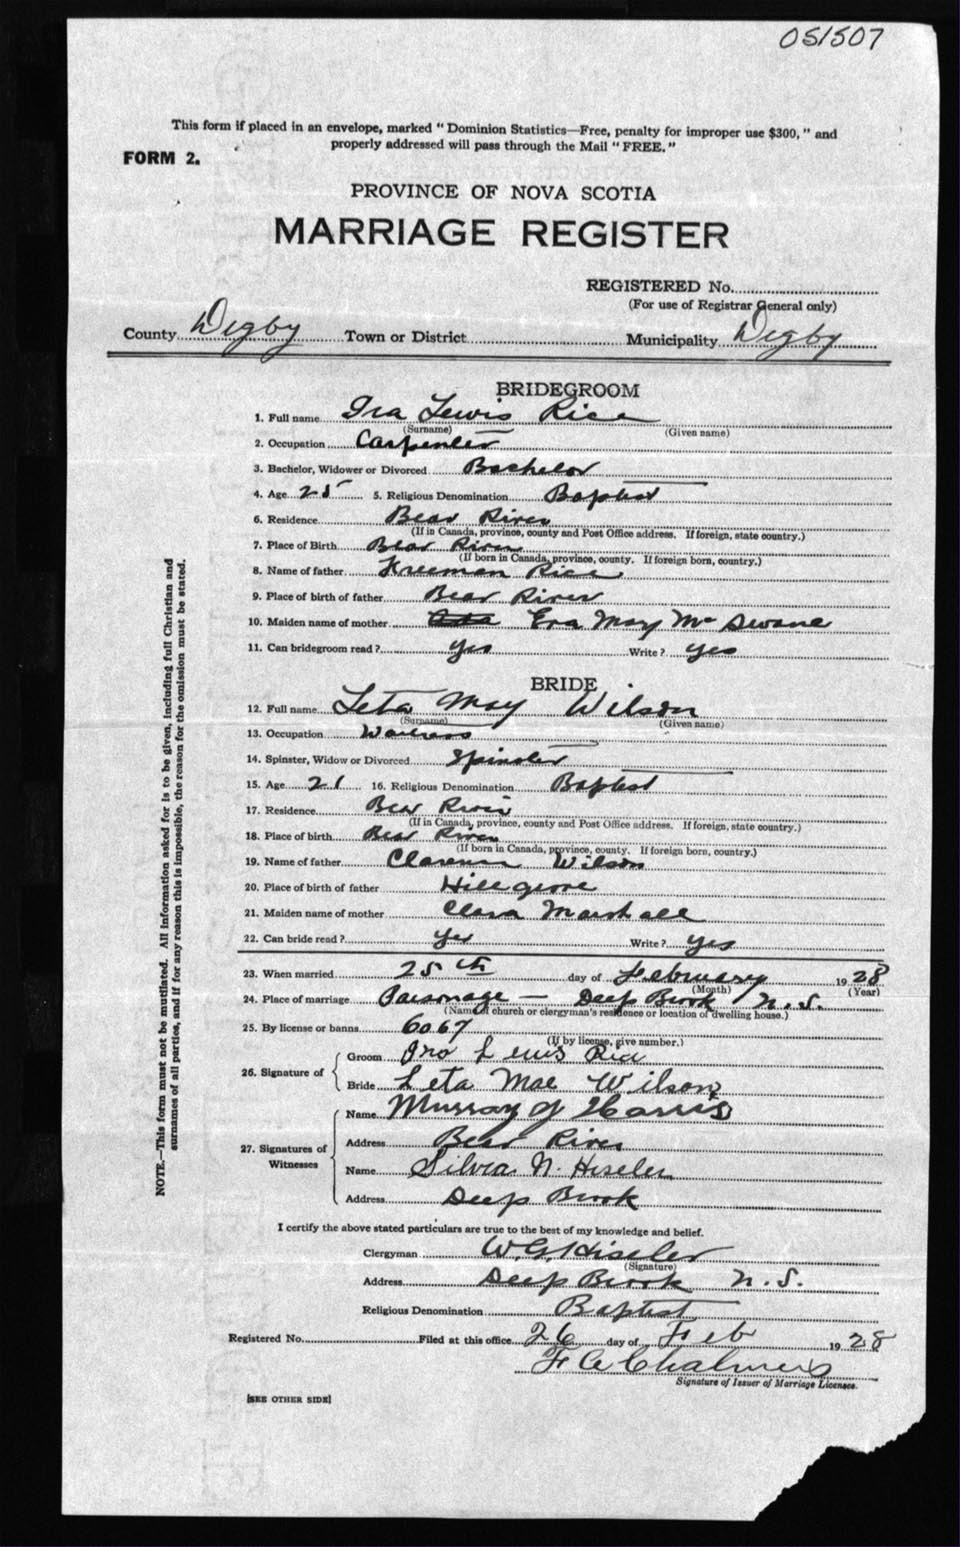 051507
This form if placed in an envelope, marked " Dominion Statistics—Free, penalty for improper use $300, " and
properly addressed will pass through the Mail " FREE. "
FORM 2.
PROVINCE OF NOVA SCOTIA
MARRIAGE REGISTER
REGISTERED No.
(For use of Registrar General only)
County Digby Town or District Municipality Digby
BRIDEGROOM
1. Full name Ira Lewis Rice
(Surname) (Given name)
2. Occupation Carpenter
3. Bachelor, Widower or Divorced Bachelor
4. Age 25 5. Religious Denomination Baptist
6. Residence Bear River
(If in Canada, province, county and Post Office address. If foreign, state country.)
7. Place of Birth Bear River
(If born in Canada, province, county. If foreign born, country.)
8. Name of father Freeman Rice
9. Place of birth of father Bear River
10. Maiden name of mother Eva May Mc
11. Can bridegroom read ? yes Write ? yes
BRIDE
12. Full name Leta May Wilson
(Surname) (Given name)
13. Occupation Waitress
14. Spinster, Widow or Divorced Spinster
15. Age 21 16. Religious Denomination Baptist
17. Residence Bear River
(If in Canada, province, county and Post Office address. If foreign, state country.)
18. Place of birth Bear River
(If born in Canada, province, county. If foreign born, country.)
19. Name of father Clarence Wilson
20. Place of birth of father Hillgrove
21. Maiden name of mother Clara Marshall
22. Can bride read ? yes Write ? yes
23. When married 25th day of February 1928
(Month) (Year)
24. Place of marriage Parsonage — Deep Brook N.S.
(Name of church or clergyman's residence or location of dwelling house.)
25. By license or banns 6067
(If by license, give number.)
26. Signature of
Groom Lewis Rice
Bride Leta Mae Wilson
27. Signatures of Witnesses
Name Murray G Harris
Address Bear River
Name Silvia N. Hiseler
Address Deep Brook
I certify the above stated particulars are true to the best of my knowledge and belief.
Clergyman W. G. Hiseler
(Signature)
Address Deep Brook N.S.
Religious Denomination Baptist
Registered No. Filed at this office 26 day of Feb 1928
F A Chalmers
Signature of Issuer of Marriage Licenses.
[SEE OTHER SIDE]
NOTE.—This form must not be mutilated. All information asked for is to be given, including full Christian and
surnames of all parties, and if for any reason this is impossible, the reason for the omission must be stated.